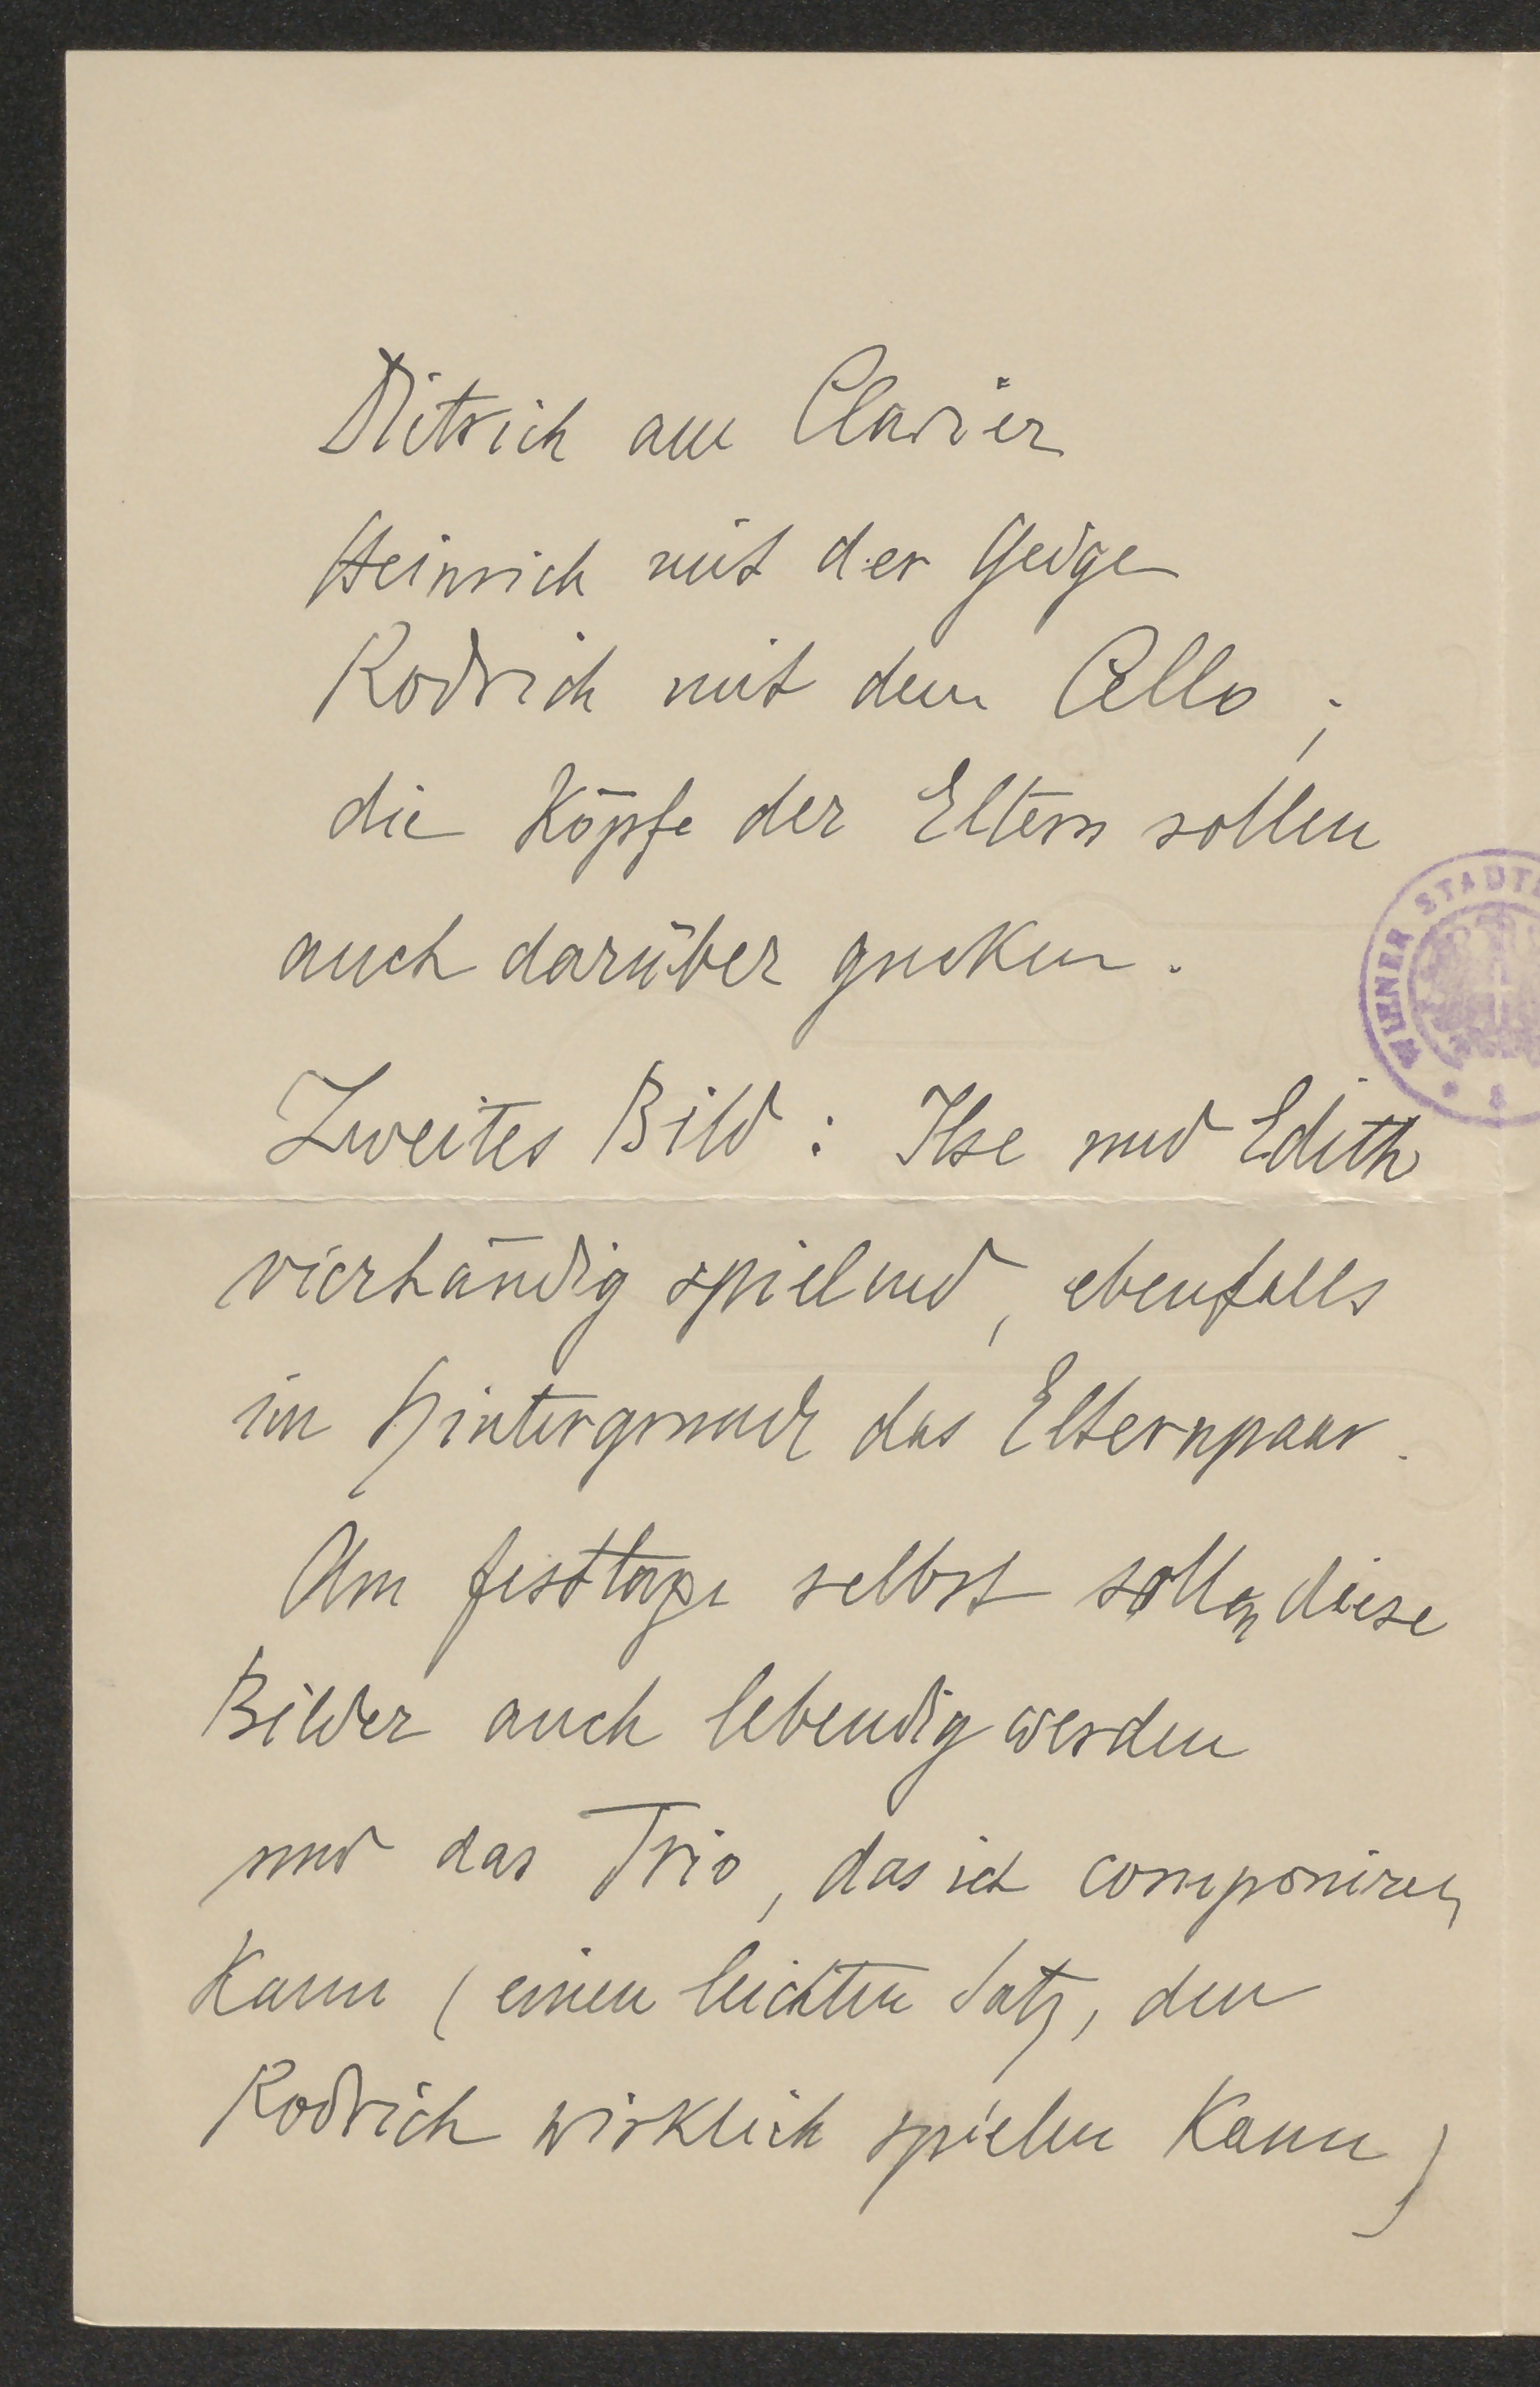 Dietrich am Clavier
Heinrich mit der Geige
Rodrich mit dem Cello ;
die Köpfe der Eltern sollen
auch darüber gucken .
WIENER STADT
Zweites Bild : Ilse und Edith
vierhändig spielend , ebenfalls
im Hintergrund das Elternpaar .
Am Festtage selbst sollen diese
Bilder auch lebendig werden
und das Trio , das ich componiren
kann ( einen leichten Satz , den
Rodrich wirklich spielen kann )